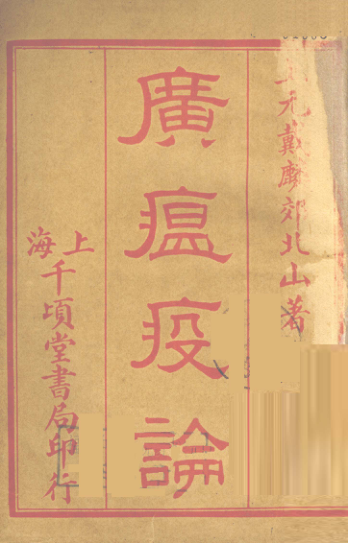 元戴麟郊北山著
廣瘟疫論
上海
千頃堂書局印行